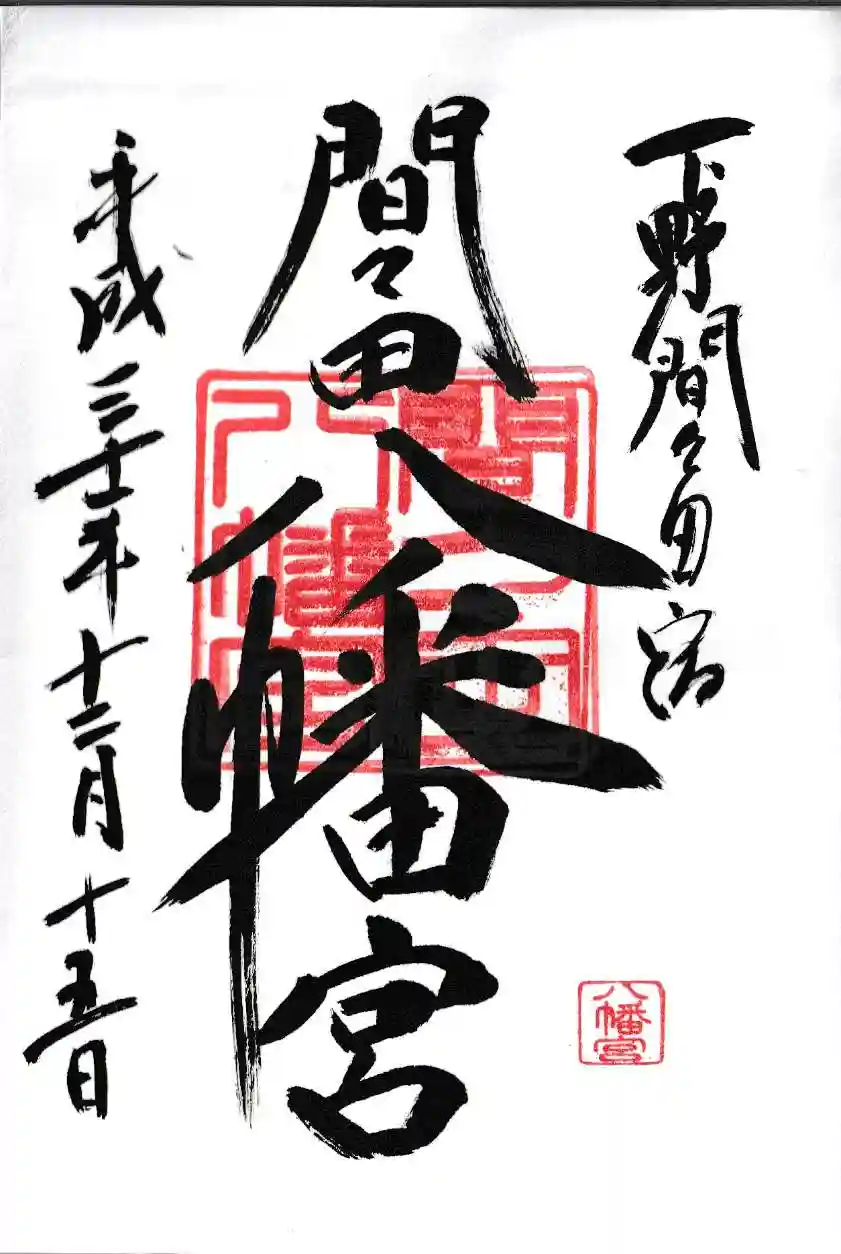 下野間々田宿
間々田八幡宮
平成三十年十二月十五日
八幡宮